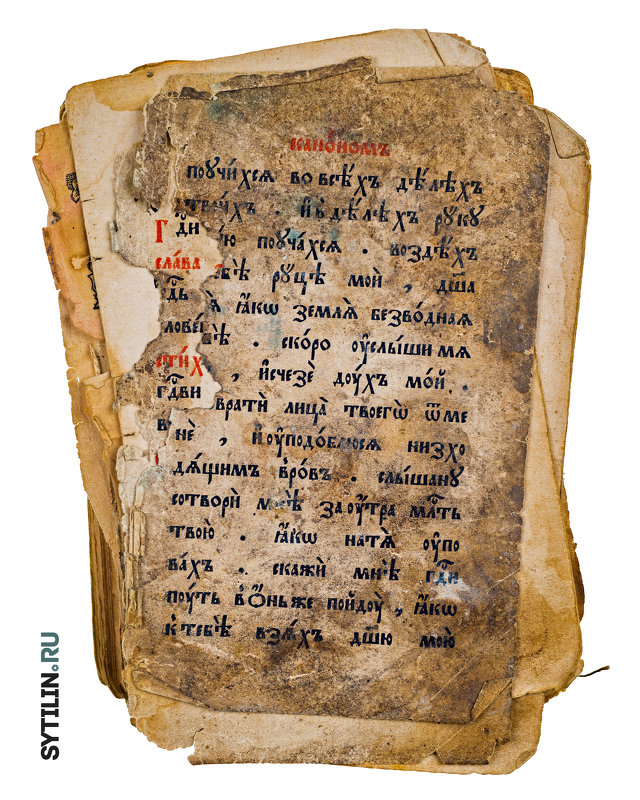 кано́номъ
поꙋчи́хсѧ во всѣ́хъ дѣ́лѣхъ
дѣ́лѣхъ рꙋкꙋ
Г гд҃и ю поꙋча́хсѧ . воздѣ́хъ
сла́ва рꙋцѣ мои̑ , дш҃а
ꙗ҆́кѡ землѧ̀ безво́днаѧ
лове́ . ско́ро оу҆слы́ши мѧ
сти́х , и҆счезѐ дꙋ́хъ мо́й .
врати̑ лица̀ твоегѡ̀ ѿ ме
нѐ , и҆ оу҆подо́блюсѧ низхо
дѧ́щимъ в ро́въ . слы́шанꙋ
сотвори̑ мнѣ̀ за оу҆́тра мл҃ть
твою̀ . ꙗ҆́кѡ на тѧ̀ оу҆по
ва́хъ . скажи̑ мнѣ̀ гд҃и
пꙋ́ть во́ньже пойдꙋ̀ , ꙗ҆́кѡ
к тебѣ̀ взѧ́хъ дш҃ꙋ мою̀
SYTILIN.RU